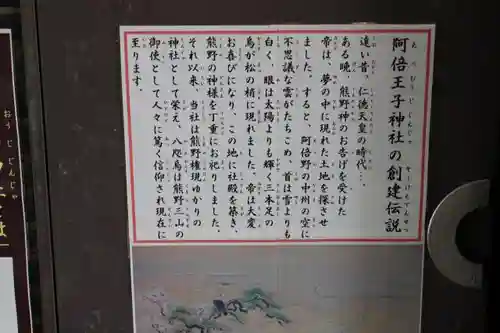 阿倍王子神社の創建伝説
遠い昔、仁徳天皇の時代…
ある晩、熊野神のお告げを受けた
帝は、夢の中に現れた土地を探させ
ました。すると、阿倍野の中州の空に
不思議な雲がたちこめ、首は雪よりも
白く、眼は太陽よりも輝く三本足の
烏が松の梢に現れました。帝は大変
お喜びになり、この地に社殿を築き、
熊野の神様を丁重にお祀りしました。
それ以来、当社は熊野権現ゆかりの
神社として栄え、八咫烏は熊野三山の
御使として人々に篤く信仰され現在に
至ります。